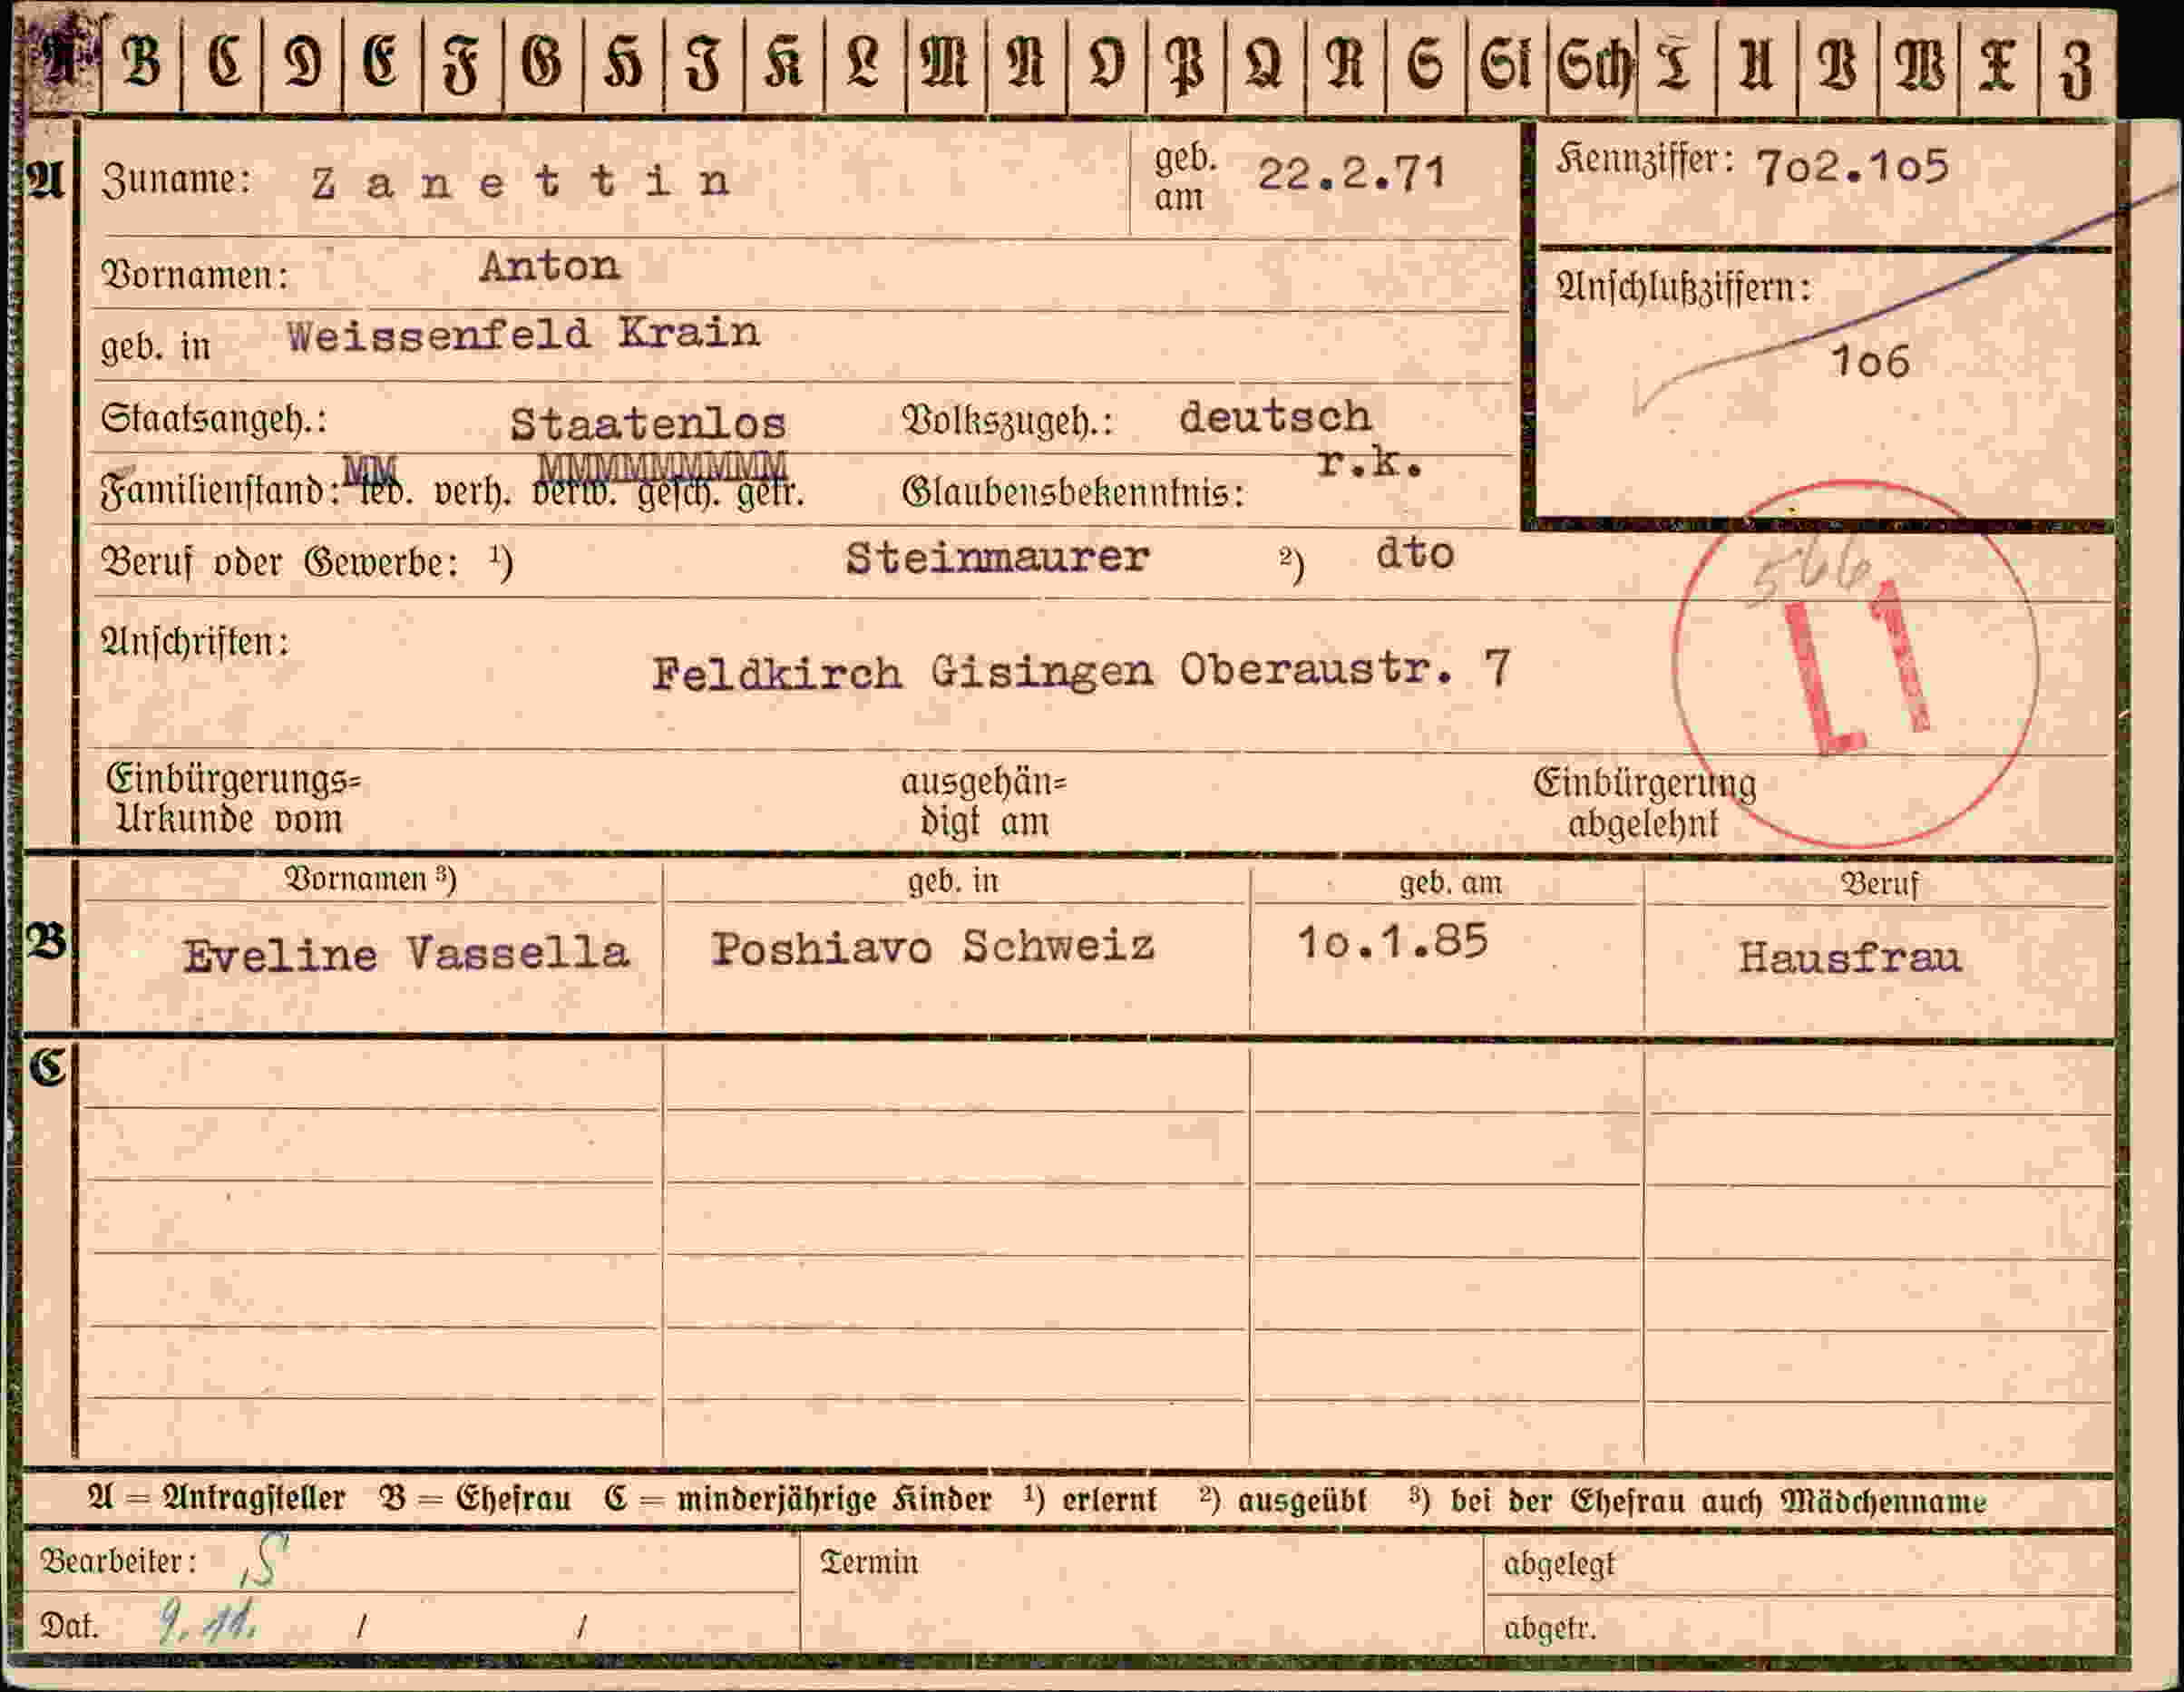 A B C D E F G H I K L M N O P Q R S St Sch T U V W X Z
A Zuname: Zanettin geb. am 22.2.71 Kennziffer: 702.105
Vornamen: Anton
Anschlußziffern:
geb. in Weissenfeld Krain
106
Staatsangeh.: Staatenlos Volkszugeh.: deutsch
Familienstand: led. verh. verw. gesch. getr. Glaubensbekenntnis: r.k.
Beruf oder Gewerbe: ¹) Steinmaurer ²) dto
566
L1
Anschriften:
Feldkirch Gisingen Oberaustr. 7
Einbürgerungs=
Urkunde vom
ausgehän=
digt am
Einbürgerung
abgelehnt
B Vornamen ³) geb. in geb. am Beruf
Eveline Vassella Poshiavo Schweiz 10.1.85 Hausfrau
C
A = Antragsteller B = Ehefrau C = minderjährige Kinder ¹) erlernt ²) ausgeübt ³) bei der Ehefrau auch Mädchenname
Bearbeiter: S Termin abgelegt
Dat. 9.11. / / abgetr.